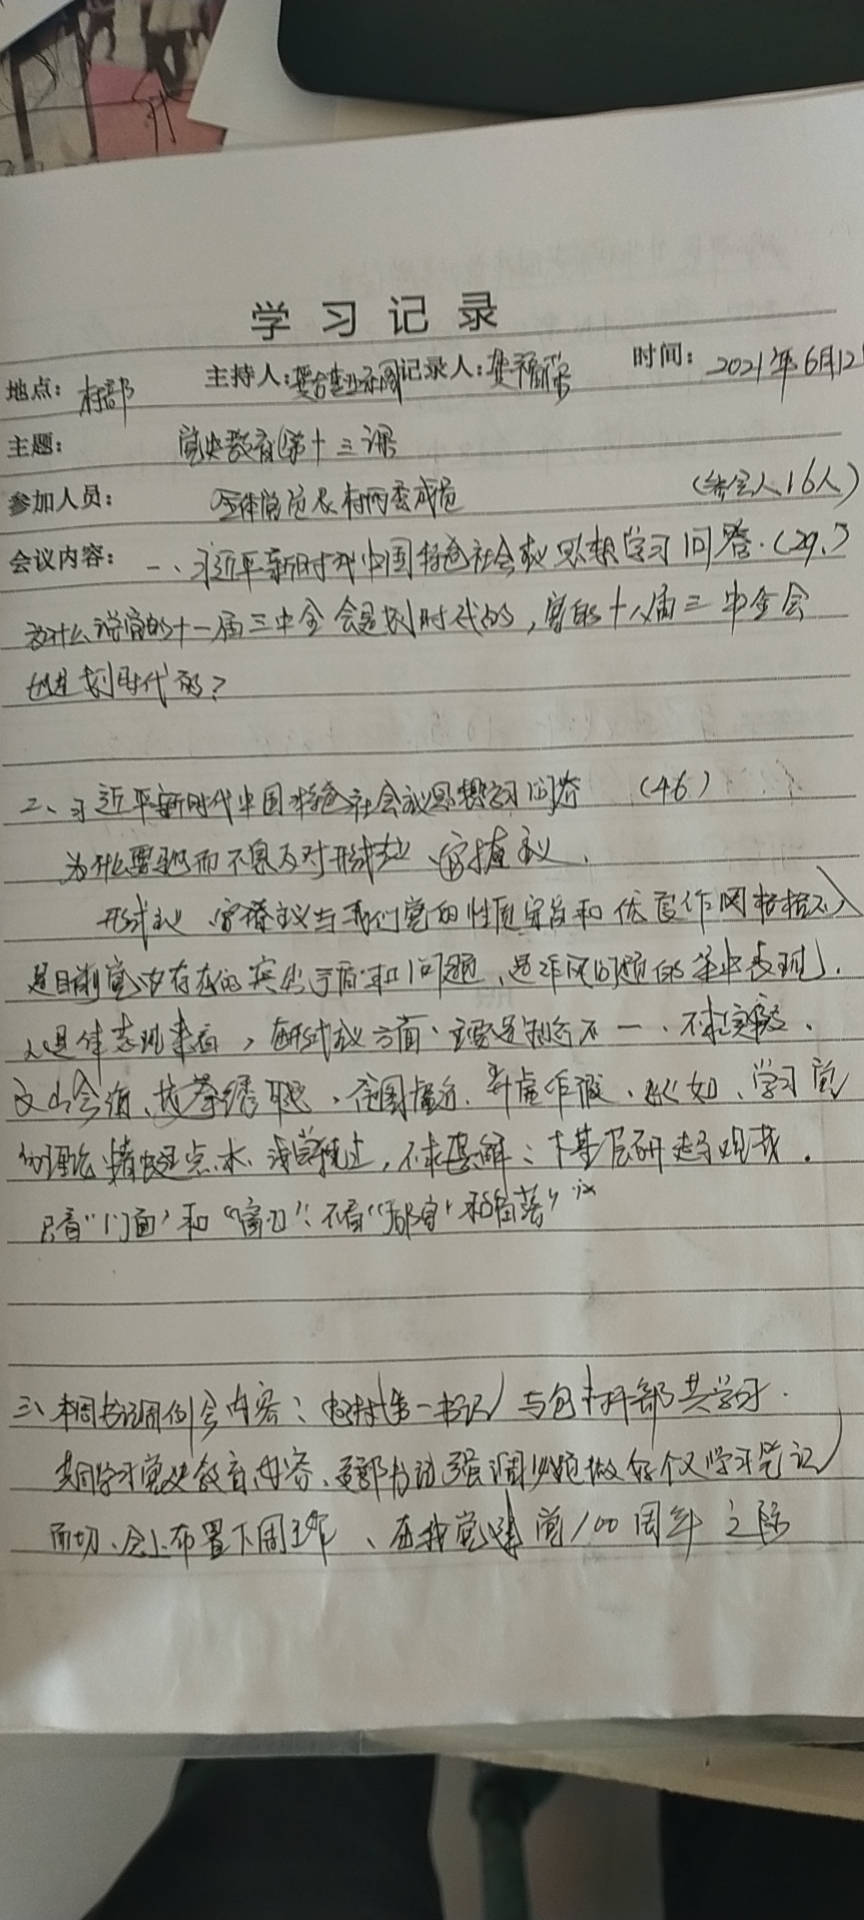 学习记录
地点：村部 主持人： 记录人： 时间：2021年6月12
主题：党史教育(第十三课
参加人员：全体党员及村两委成员 (参会人16人)
会议内容：一、习近平新时代中国特色社会主义思想学习问答.(29.)
为什么说党的十一届三中全会是划时代的，党的十八届三中全会
也是划时代的？
二、习近平新时代中国特色社会主义思想学习问答 (46)
为什么要驰而不息反对形式主义 官僚主义.
形式主义 官僚主义与我们党的性质宗旨和优良作风格格不入
是目前党内存在的突出矛盾和问题、是作风问题的集中表现.
从具体表现来看，在形式主义方面、主要是知行不一、不求实效.
文山会海、花拳绣腿、贪图虚名、弄虚作假、比如、学习党
的理论蜻蜓点水、浅尝辄止，不求甚解；下基层调研走马观花.
只看“门面”和“窗口”、不看“后院”和“角落”
三、本周书记周例会内容：驻村(第一书记)与包村干部共学习.
共同学习党史教育内容、支部书记强调必须做好个人学习笔记
布置下周工作、在我党建党100周年之际